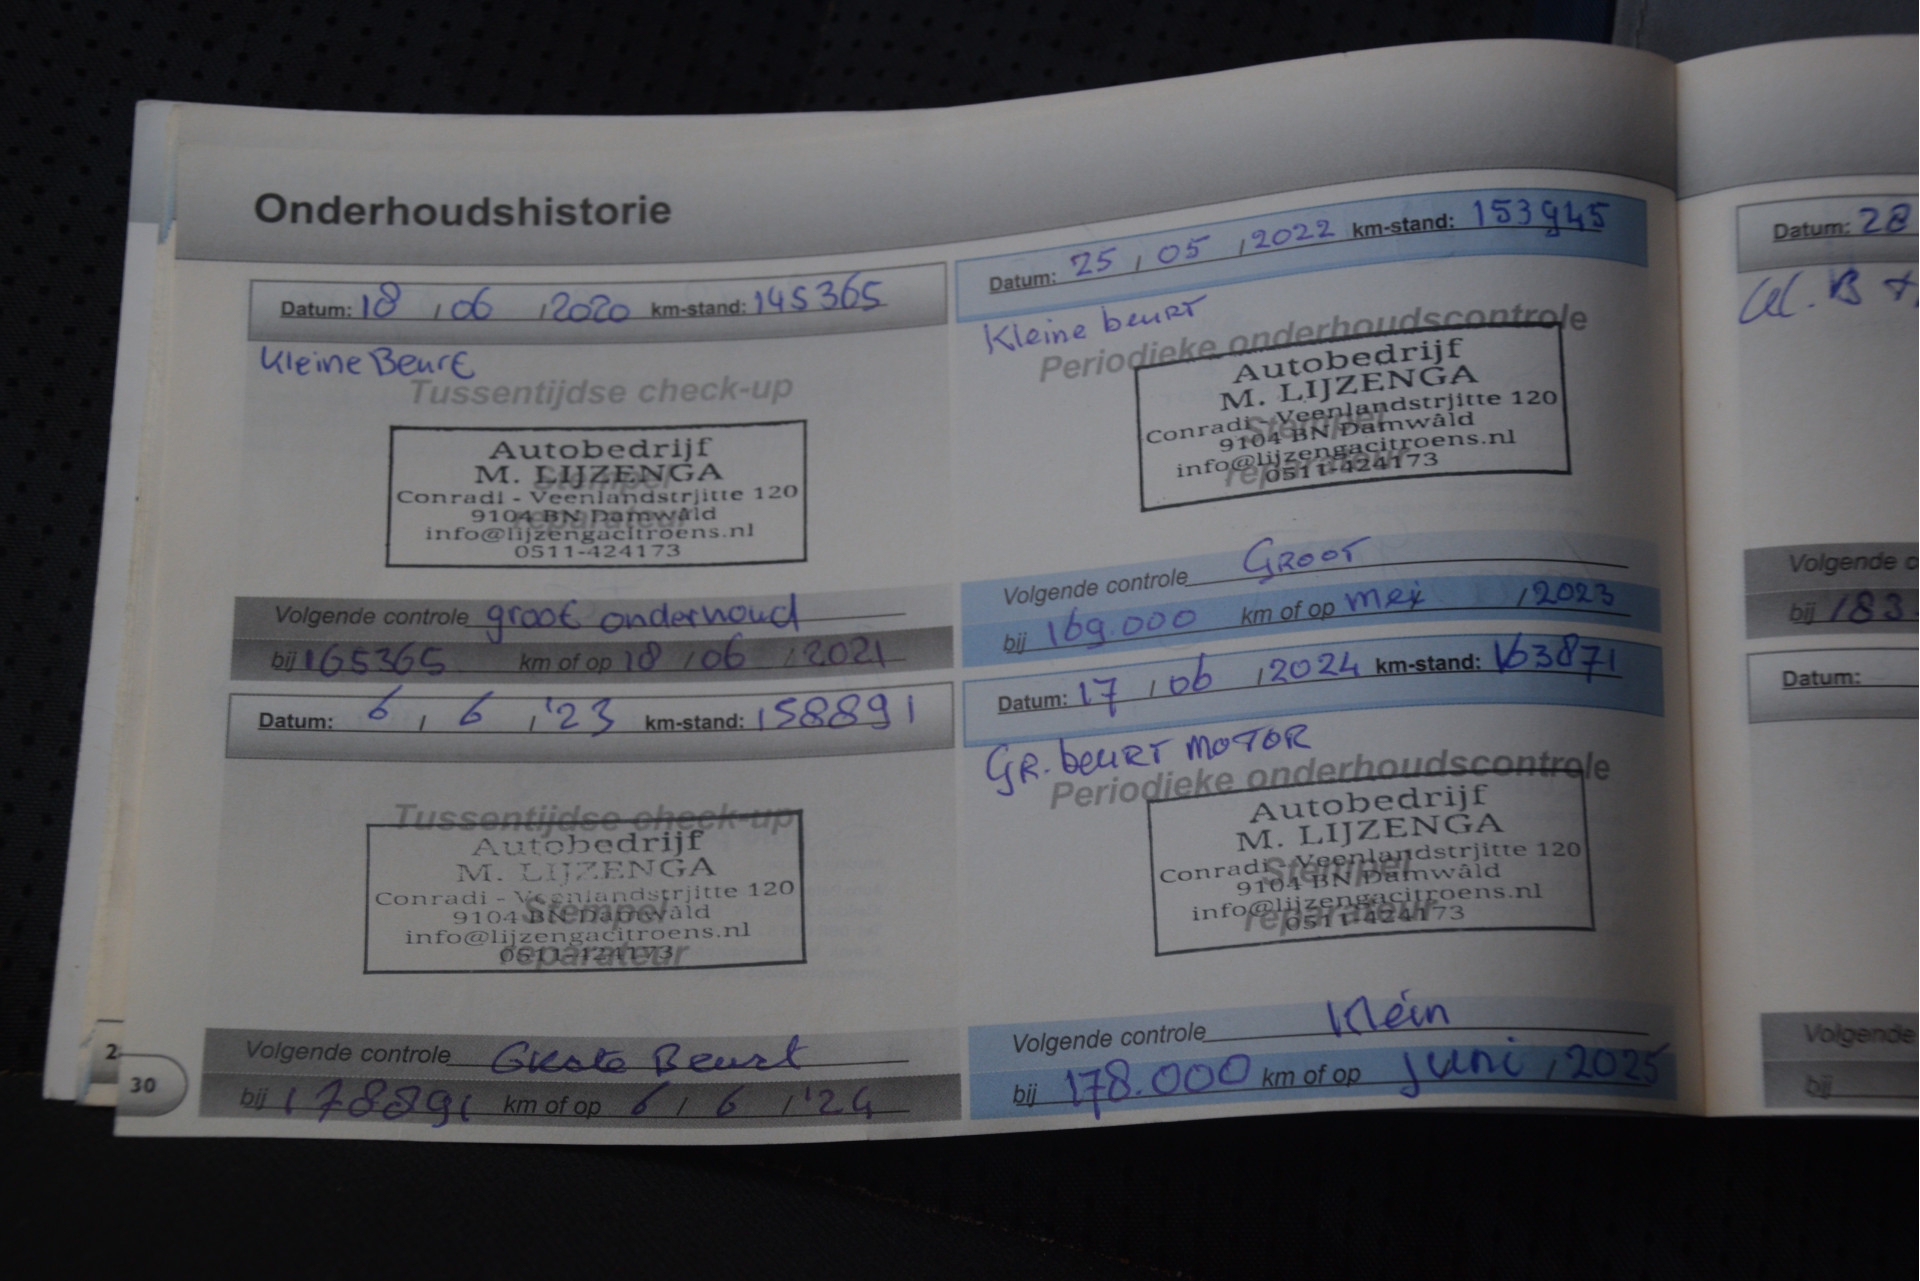 Onderhoudshistorie
Datum: 18 / 06 / 2020 km-stand: 145365
Kleine Beurt
Tussentijdse check-up
Stempel
reparateur
Autobedrijf
M. LIJZENGA
Conradi - Veenlandstrjitte 120
9104 BN Damwâld
info@lijzengacitroens.nl
0511-424173
Volgende controle groot onderhoud
bij 165365 km of op 18 / 06 / 2021
Datum: 6 / 6 / '23 km-stand: 158891
Tussentijdse check-up
Stempel
reparateur
Autobedrijf
M. LIJZENGA
Conradi - Veenlandstrjitte 120
9104 BN Damwâld
info@lijzengacitroens.nl
0511-424173
Volgende controle Grote Beurt
bij 178891 km of op 6 / 6 / '24
30
2
Datum: 25 / 05 / 2022 km-stand: 153945
Kleine beurt
Periodieke onderhoudscontrole
Stempel
reparateur
Autobedrijf
M. LIJZENGA
Conradi - Veenlandstrjitte 120
9104 BN Damwâld
info@lijzengacitroens.nl
0511-424173
Volgende controle GROOT
bij 169.000 km of op mei / 2023
Datum: 17 / 06 / 2024 km-stand: 163871
GR. beurt MOTOR
Periodieke onderhoudscontrole
Stempel
reparateur
Autobedrijf
M. LIJZENGA
Conradi - Veenlandstrjitte 120
9104 BN Damwâld
info@lijzengacitroens.nl
0511-424173
Volgende controle Klein
bij 178.000 km of op juni / 2025
Datum: 28
Volgende c
bij 183.
Datum:
Volgende
bij